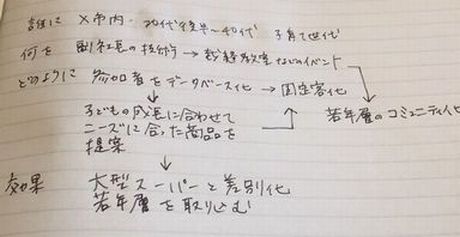 誰に X市内・20代後半〜40代 子育て世代
何を 副社長の技術 → 裁縫教室などのイベント
どのように 参加者をデータベース化 → 固定客化
若年層のコミュニティ化
子どもの成長に合わせて
ニーズに合った商品を
提案
効果 大型スーパーと差別化
若年層を取り込む